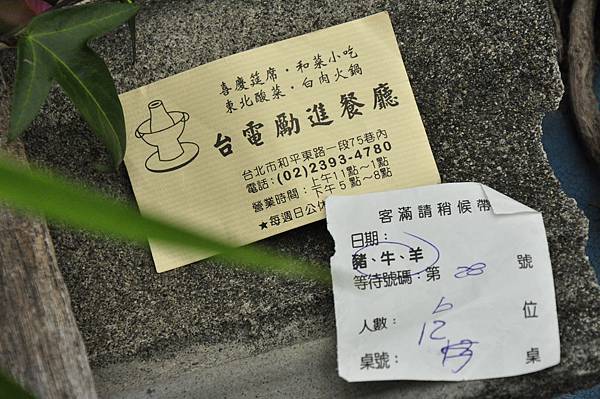 喜慶筵席·和菜小吃
東北酸菜·白肉火鍋
台電勵進餐廳
台北市和平東路一段75巷內
電話:(02)2393-4780
營業時間:上午11點~1點
下午5點~8點
★每週日公休
客滿請稍候帶
日期:
豬、牛、羊
等待號碼:第 28 號
人數: 6 位
12
桌號: 桌